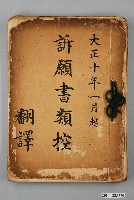 大正十年一月起
訴願書類控
翻譯